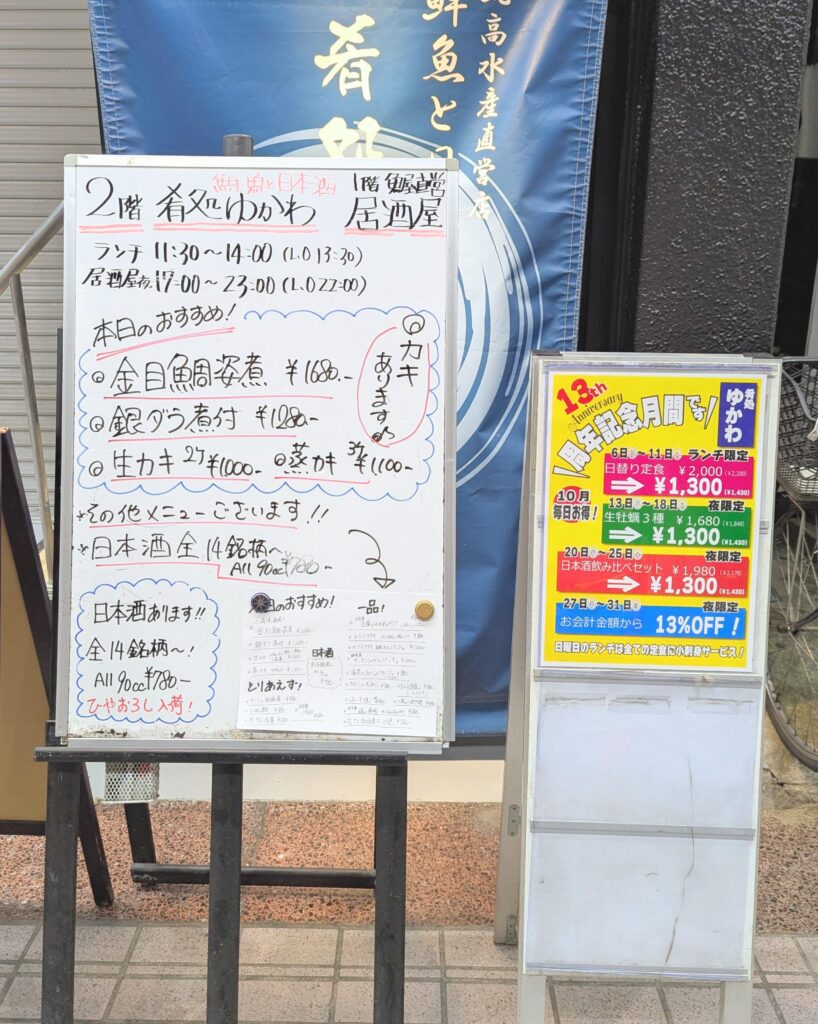 高水産直営店
鮮魚と
肴処
鮮魚と日本酒
1階魚屋直営
2階 肴処ゆかわ 居酒屋
ランチ 11:30〜14:00 (L.O 13:30)
居酒屋夜17:00〜23:00 (L.O 22:00)
本日のおすすめ!
カキ
あります
金目鯛姿煮 ¥1680.-
銀ダラ煮付 ¥1280-
生カキ 2ケ ¥1000- 蒸カキ 3ケ ¥1100-
*その他メニューございます!!
*日本酒全14銘柄〜
All 90cc ¥780-
日本酒あります!!
全14銘柄〜!
All 90cc ¥780-
ひやおろし入荷!
のおすすめ!
一品!
日本酒
とりあえず!
13th
Anniversary
周年記念月間です
肴処
ゆかわ
10月
毎日お得!
6日〜11日 ランチ限定
日替り定食 ¥2,000 (¥2,200)
⇒ ¥1,300 (¥1,430)
13日〜18日 夜限定
生牡蠣3種 ¥1,680 (¥1,848)
⇒ ¥1,300 (¥1,430)
20日〜25日 夜限定
日本酒飲み比べセット ¥1,980 (¥2,178)
⇒ ¥1,300 (¥1,430)
27日〜31日 夜限定
お会計金額から 13%OFF!
日曜日のランチは全ての定食に小刺身サービス!